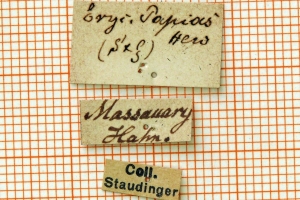 Eryc. Papias
Hew
Massauary
Hahn.
Coll.
Staudinger